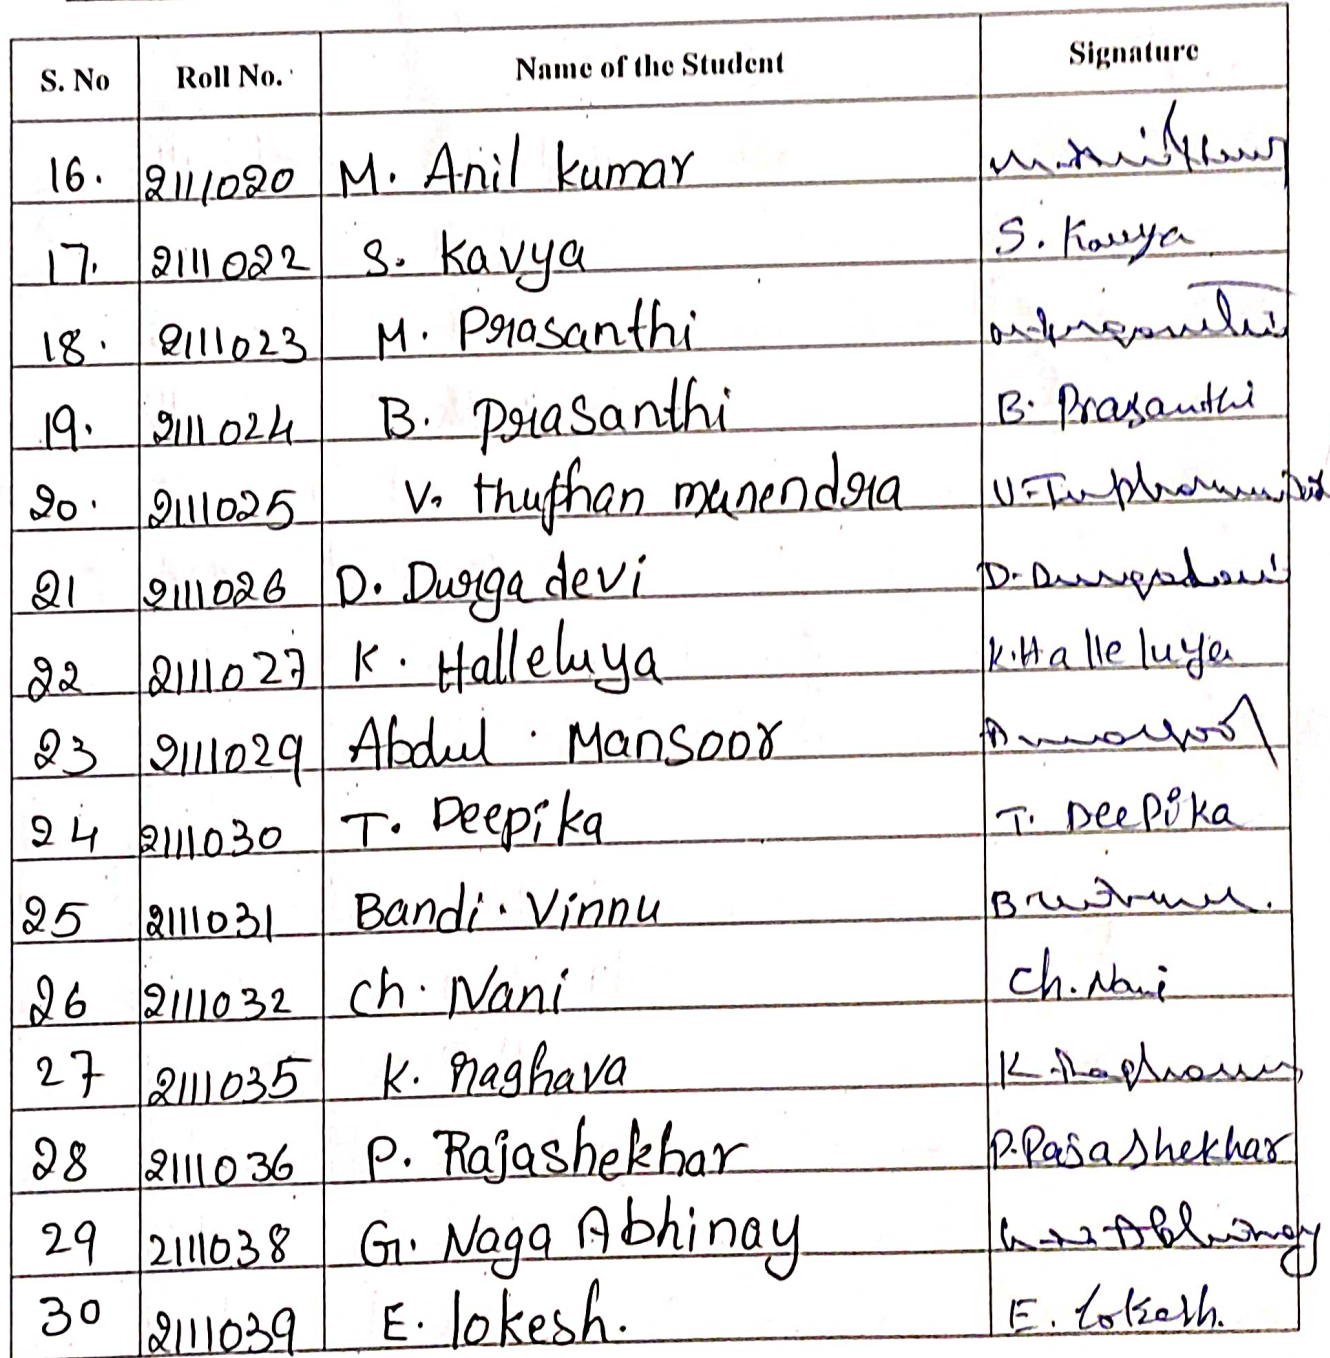 S. No Roll No. Name of the Student Signature
16. 2111020 M. Anil kumar
17. 2111022 S. Kavya S. Kavya
18. 2111023 M. Prasanthi
19. 2111024 B. prasanthi B. Prasanthi
20. 2111025 V. thuphan manendra
21 2111026 D. Durga devi D. Durgadevi
22 2111027 K. Halleluya K. Halleluya
23 2111029 Abdul . Mansoor
24 2111030 T. Deepika T. Deepika
25 2111031 Bandi . Vinnu
26 2111032 Ch. Nani Ch. Nani
27 2111035 K. Raghava
28 2111036 P. Rajashekhar P. Rajashekhar
29 2111038 G. Naga Abhinay
30 2111039 E. lokesh. E. Lokesh.